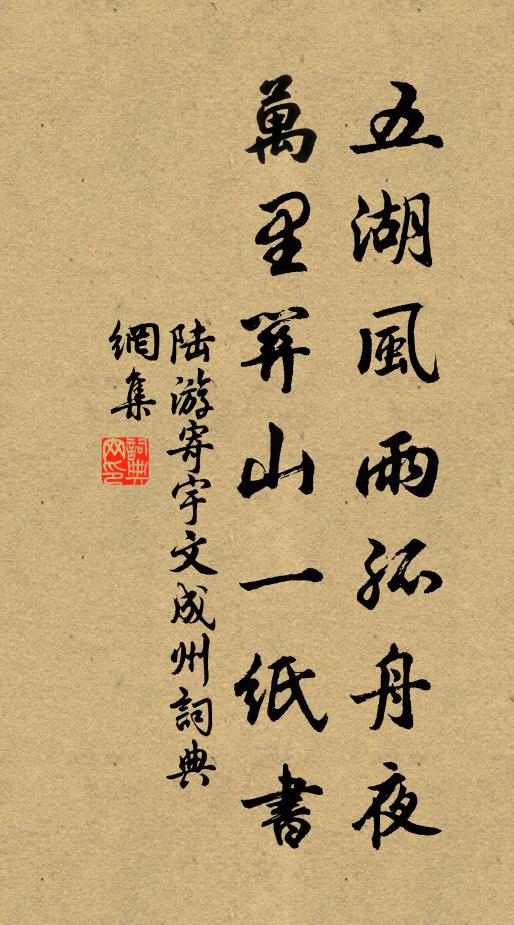 五湖風雨孤舟夜
萬里關山一紙書
陆游寄宇文成州詞典
網集
詞典
网印